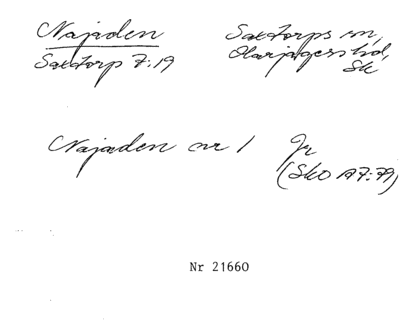 Najaden
Saxtorp 7:19
Saxtorps sn,
Harjagers hd,
Sk
Najaden nr 1
Jr
(SkO 197:79)
Nr 21660